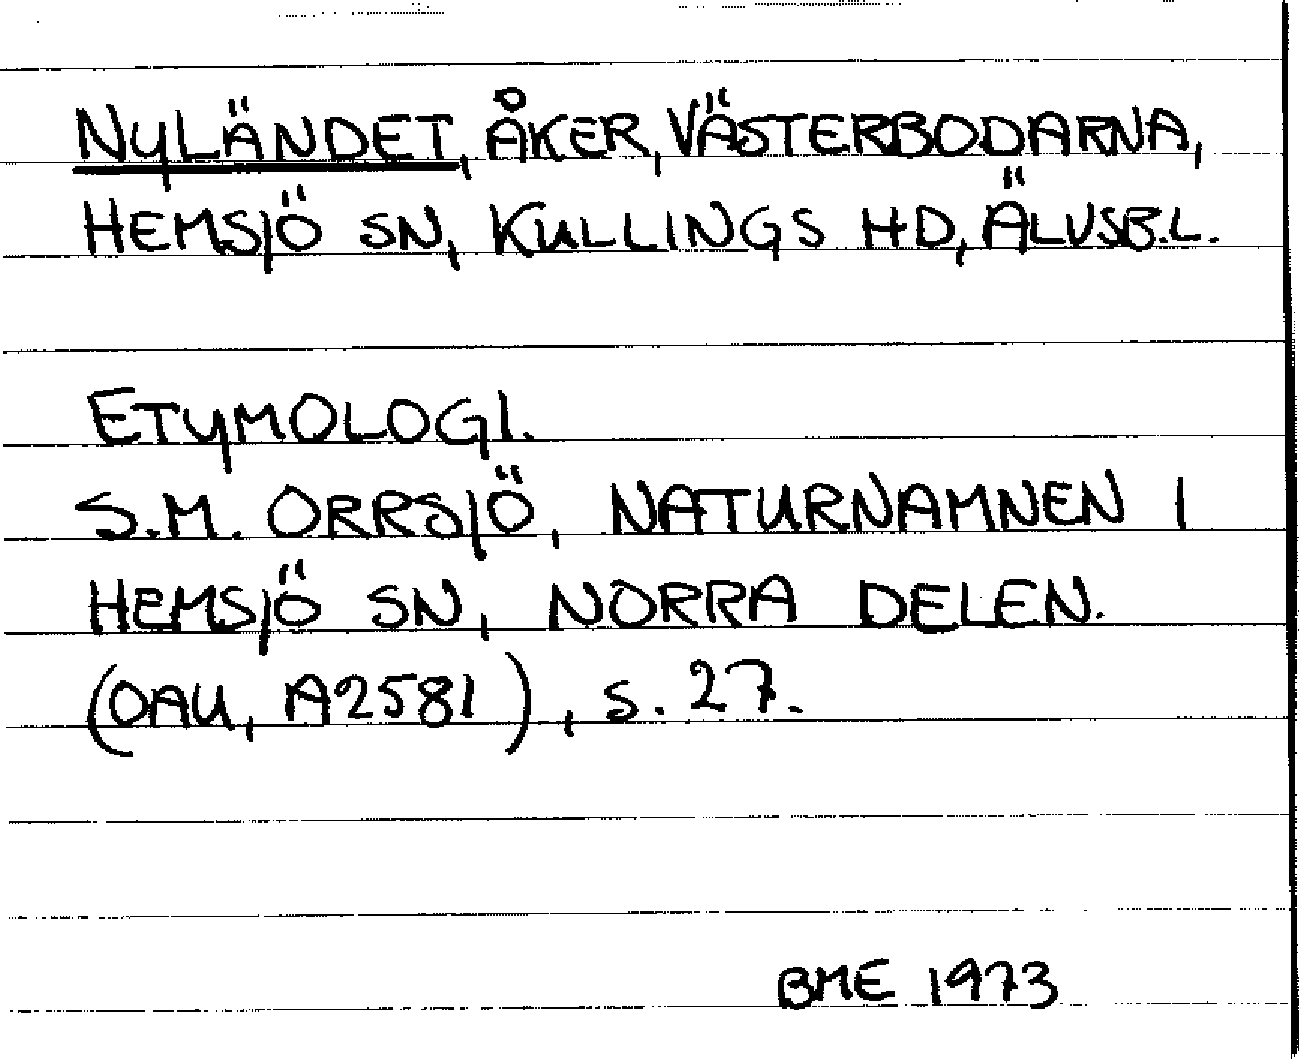 NYLÄNDET, ÅKER, VÄSTERBODARNA,
HEMSJÖ SN, KULLINGS HD, ÄLVSB.L.
ETYMOLOGI.
S.M. ORRSJÖ, NATURNAMNEN I
HEMSJÖ SN, NORRA DELEN.
(OAU, A2581), S. 27.
BME 1973